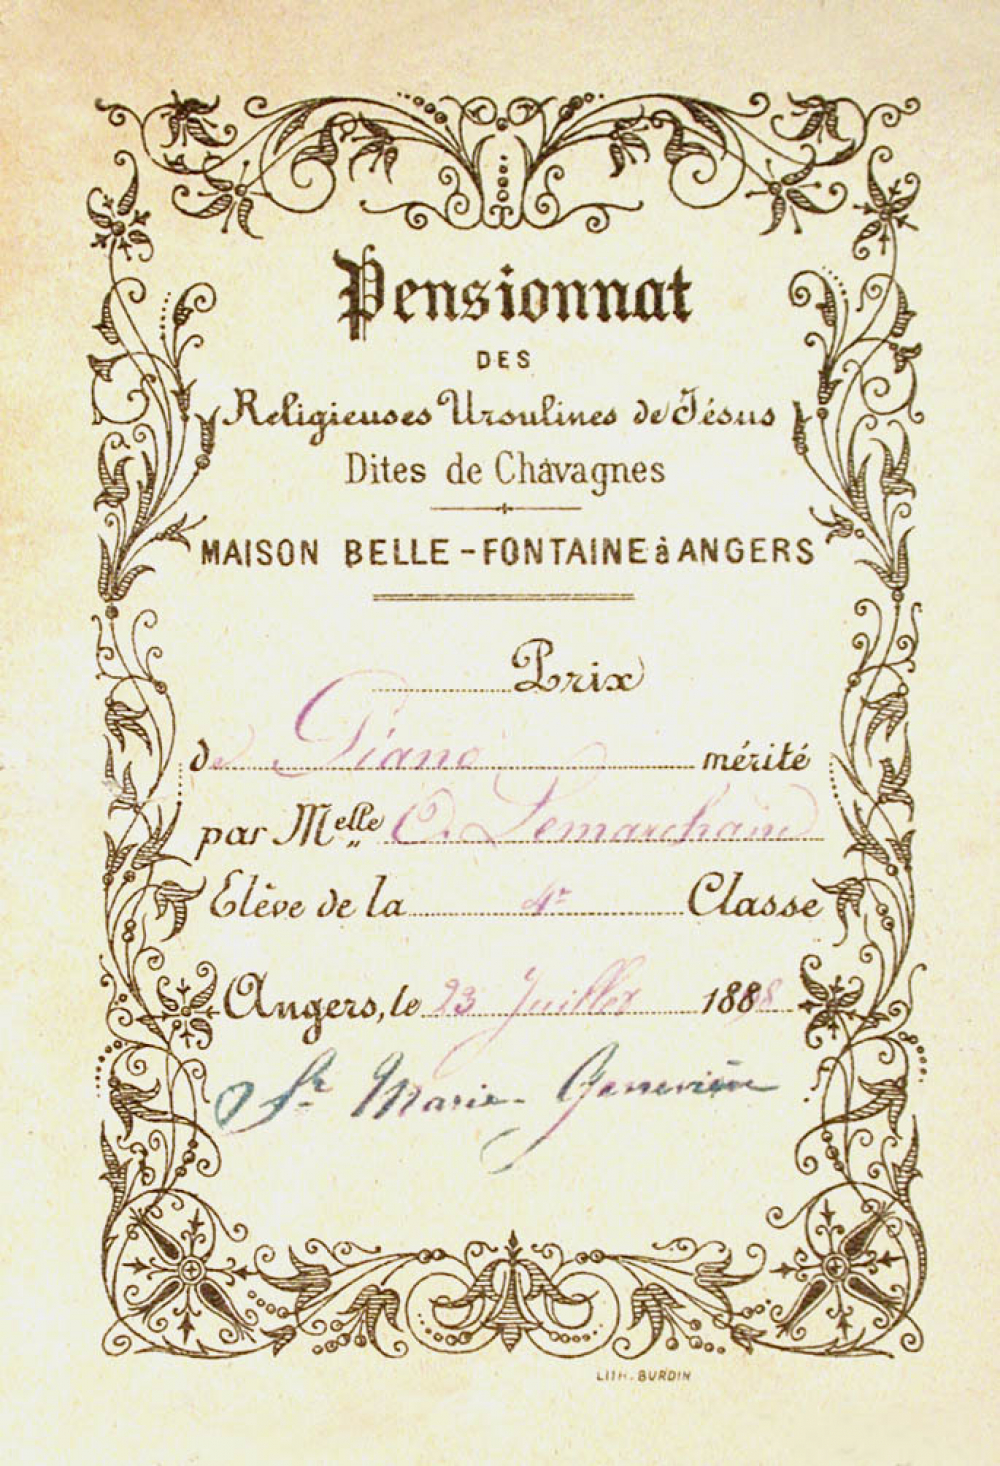 Pensionnat
DES
Religieuses Ursulines de Jésus
Dites de Chavagnes
MAISON BELLE-FONTAINE à ANGERS
Prix
de Piano mérité
par Melle C. Lemarchand
Elève de la 4e Classe
Angers, le 23 Juillet 1888
Sr Marie-Geneviève
LITH. BURDIN